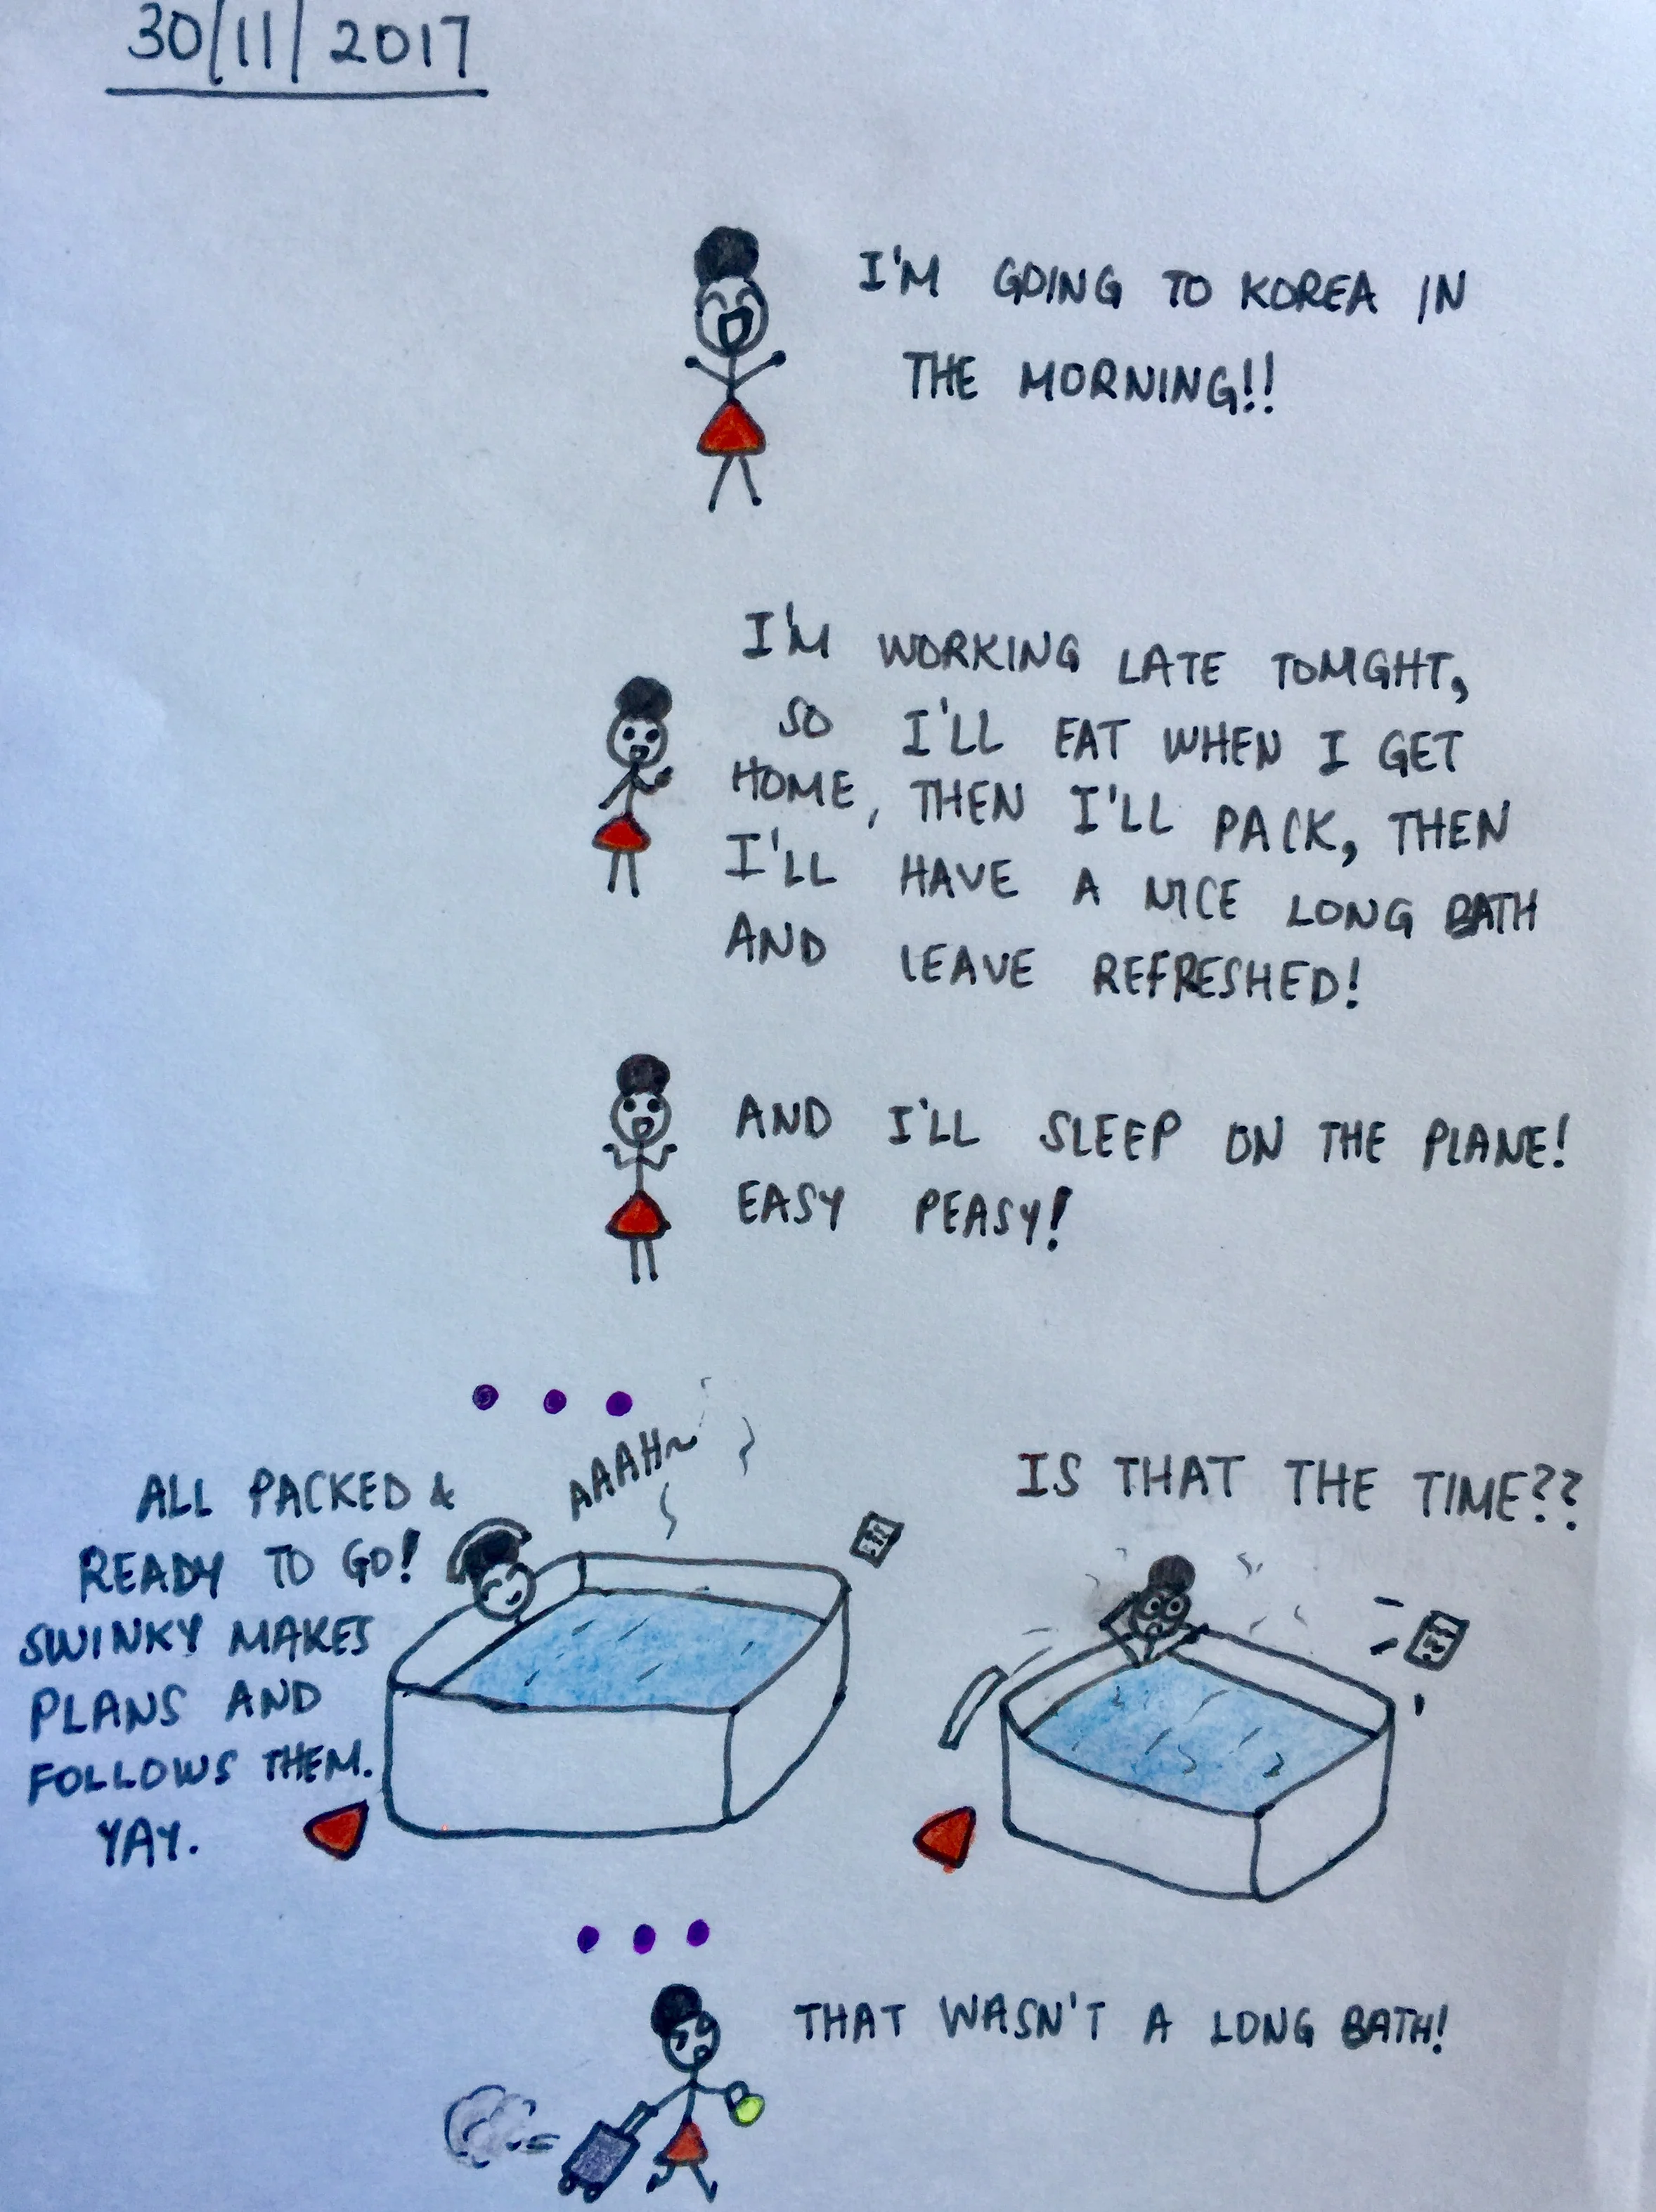 30/11/2017
I'M GOING TO KOREA IN
THE MORNING!!
I'M WORKING LATE TONIGHT,
SO I'LL EAT WHEN I GET
HOME, THEN I'LL PACK, THEN
I'LL HAVE A NICE LONG BATH
AND LEAVE REFRESHED!
AND I'LL SLEEP ON THE PLANE!
EASY PEASY!
AAAH~
ALL PACKED &
READY TO GO!
SWINKY MAKES
PLANS AND
FOLLOWS THEM.
YAY.
IS THAT THE TIME??
THAT WASN'T A LONG BATH!